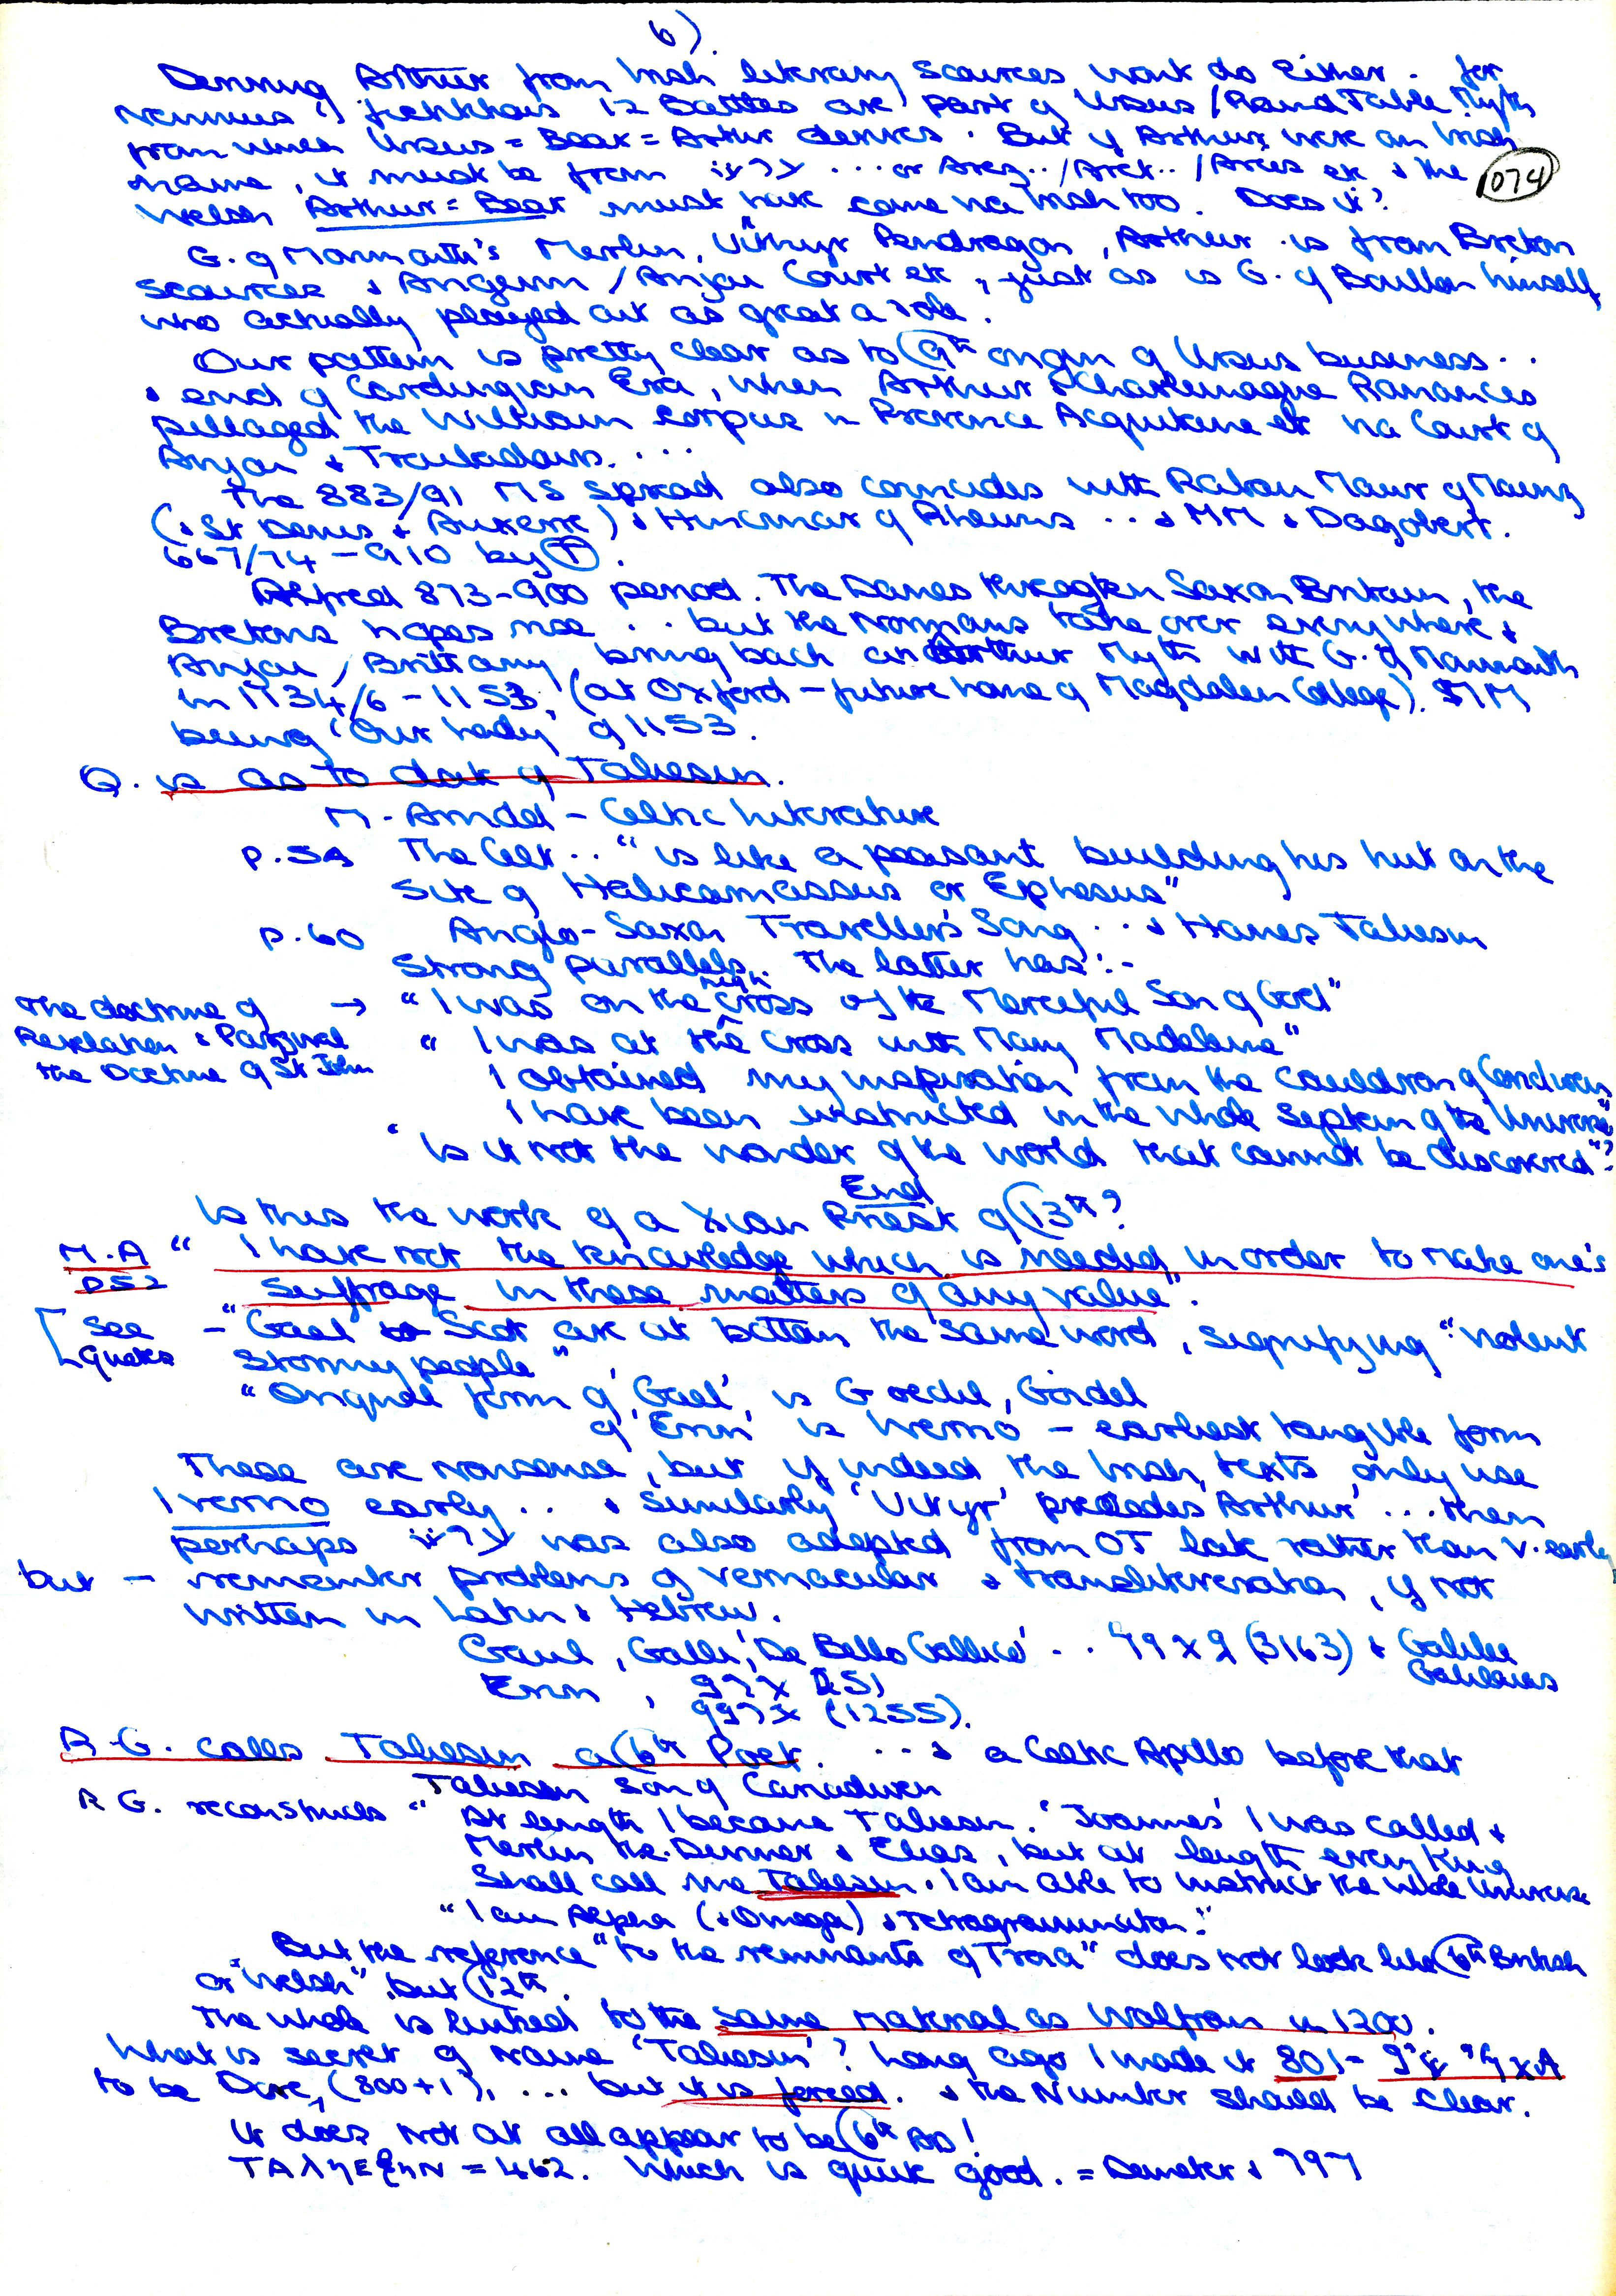 6).
Deriving Arthur from Irish literary sources wont do Either. for
Nennius' 12 Battles are part of Ursus / Round Table Myth
from when Ursus = Bear = Arthur derives. But if Arthur were an Irish
name, it must be from ... or Areg.. / Arck.. / Arcus etc & the
074
Welsh Arthur = Bear must have come via Irish too. Does it?
G. of Monmouth's Merlin, Uthyr Pendragon, Arthur is from Breton
sources & Angevin / Anjou Court etc, just as is G. of Bouillon himself
who actually played out as great a role.
Our pattern is pretty clear as to 9th origin of Ursus business..
& end of Carolingian Era, when Arthur & Charlemagne Romances
pillaged the William corpus in Provence Acquitaine etc via Court of
Anjou & Troubadours....
The 883/91 MS spread also coincides with Raban Maur of Mainz
(& St Denis & Auxerre) & Hincmar of Rheims ... & MM & Dagobert.
667/74 - 910 by T.
Alfred 873-900 period. The Danes threaten Saxon Britain, the
Bretons hopes rise .. but the Normans take over everywhere &
Anjou / Brittany bring back an Arthur Myth with G. of Monmouth
in 1134/6 - 1153, (at Oxford - future home of Magdalen College). MM
being 'Our Lady' of 1153.
Q. is as to date of Taliesin.
M. Arnold - Celtic Literature
p. 54 The Celt .. " is like a peasant building his hut on the
site of Halicarnassus or Ephesus"
p. 60 Anglo-Saxon Traveller's Song ... & Hanes Taliesin
Strong parallels. The latter has:-
The doctrine of → "I was on the high cross of the Merciful Son of God"
Revelation & Parzival " I was at the cross with Mary Madelaine"
the Doctrine of St John I obtained my inspiration from the cauldron of Ceridwen
I have been instructed in the whole System of the Universe"
"Is it not the wonder of the world that cannot be discovered"?
End
Is this the work of a Xian Priest of 13th?
M.A " I have not the knowledge which is needed in order to make one's
p52 suffrage in these matters of any value".
[See - "Gael & Scot are at bottom the same word, signifying "violent
quotes stormy people",
"Original form of 'Gael' is Goedel, Goidel
of 'Erin' is Iverno - earliest tangible form
These are nonsense, but if indeed the Irish texts only use
Iverno early .. & similarly 'Uityr' precedes 'Arthur' ... then
perhaps was also adopted from OT late rather than v. early
but - remember problems of vernacular & transliteration, if not
written in Latin & Hebrew.
Gaul, Galli, 'De Bello Gallico' .. (3163) & Galilee
Galileans
Erin,
(1255).
R.G. calls Taliesin a 6th Poet. ... & a Celtic Apollo before that
Taliesin Son of Caridwen
R G. reconstructs " At length I became Taliesin. 'Joannes' I was called &
Merlin the Diviner & Elias, but at length every King
Shall call me Taliesin. I am able to instruct the whole Universe
"I am Alpha (& Omega) & Tetragrammaton."
But the reference "to the remnants of Troia" does not look like 6th British
or "Welsh", but 12th.
The whole is linked to the same material as Wolfram in 1200.
What is secret of name 'Taliesin'? Long ago I made it 801 =
to be Dove, (800+1), ... but it is forced. & the Number should be Clear.
It does not at all appear to be 6th AD!
= 462. Which is quite good. = Demeter &